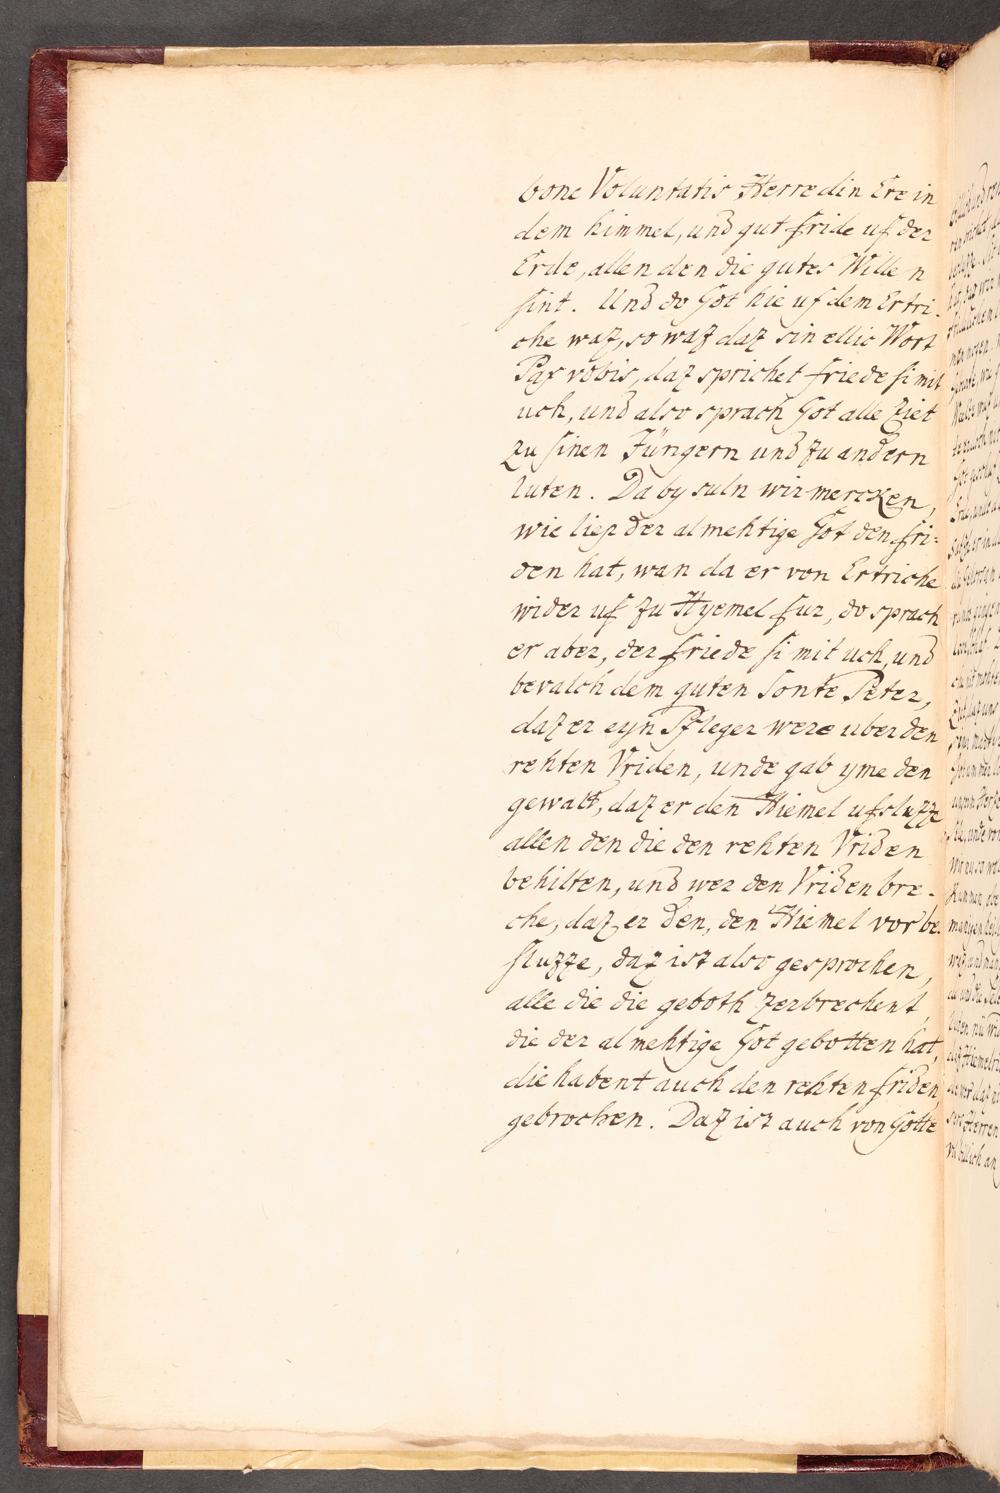 bone Voluntatis Herre din Ere in
dem himmel, und gut fride uf der
Erde, allen den die gutes Willen
sint. Und do Got hie uf dem Ertri-
che waz, so waz daz sin ellic Wort
Pax vobis, daz sprichet friede si mit
uch, und also sprach Got alle Ziet
zu sinen Jüngern und zu andern
luten. Da by suln wir mercken,
wie liep der almehtige Got den fri-
den hat, wan da er von Ertriche
wider uf zu Hyemel fur, do sprach
er aber, der friede si mit uch, und
bevalch dem guten Sonte Peter,
daz er eyn Pfleger were uber den
rehten Vriden, unde gab yme den
gewalt, daz er den Hiemel ufsluzze
allen den die den rehten Vriden
behilten, und wer den Vriden bre-
che, daz er den, den Hiemel vor be-
sluzze, daz ist also gesprochen,
alle die die geboth zerbrechent,
die der almehtige Got gebotten hat,
die habent auch den rehten friden
gebrochen. Daz ist auch von Gotte